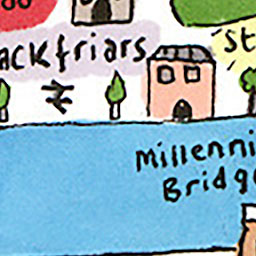 ackfriars
St
Millenni
Bridg